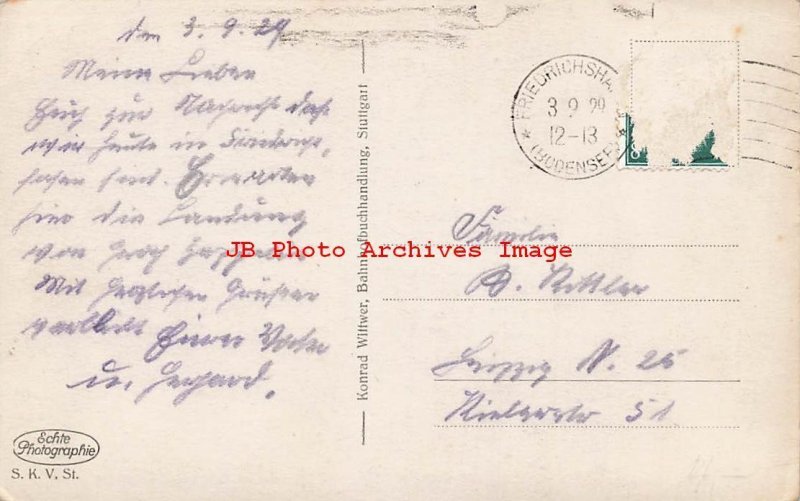 den 3. 9. 29
Meine Lieben
Euch zur Nachricht daß
wir heute in Friedrichs-
hafen sind. Erwarten
hier die Landung
von Graf Zeppelin
Mit herzlichen Grüßen
verbleibt Euer Vater
u. Gerhard.
Echte
Photographie
S. K. V. St.
Konrad Wittwer, Bahnhofbuchhandlung, Stuttgart
FRIEDRICHSHA
3 9 29
12-13
(BODENSEE)
8
JB Photo Archives Image
Familie
Rittler
Leipzig N. 25
51